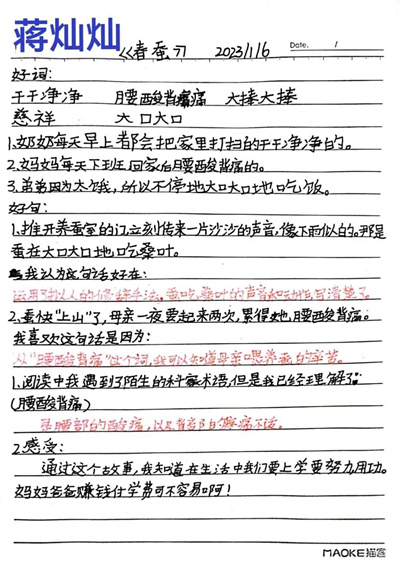 蒋灿灿
《春蚕》 2023/1/6 Date. /
好词:
干干净净 腰酸背痛 大捧大捧
慈祥 大口大口
1.奶奶每天早上都会把家里打扫的干干净净的。
2.妈妈每天下班回家后腰酸背痛的。
3.弟弟因为太饿,所以不停地大口大口地吃饭。
好句:
1.推开养蚕室的门,立刻传来一片沙沙的声音,像下雨似的。那是
蚕在大口大口地吃桑叶。
我认为这句话好在:
运用了拟人的修辞手法。蚕吃桑叶的声音和动作写清楚了。
2.蚕快“上山”了,母亲一夜要起来两次,累得她,腰酸背痛。
我喜欢这句话是因为:
从“腰酸背痛”这个词,我可以知道母亲喂养蚕的辛苦。
1.阅读中我遇到了陌生的科察术语,但是我已经理解了:
(腰酸背痛)
是腰部的酸痛,以及背部自痛不适。
2.感受:
通过这个故事,我知道在生活中我们要上学要努力用功。
妈妈爸爸赚钱付学费可不容易啊!
MAOKE猫客